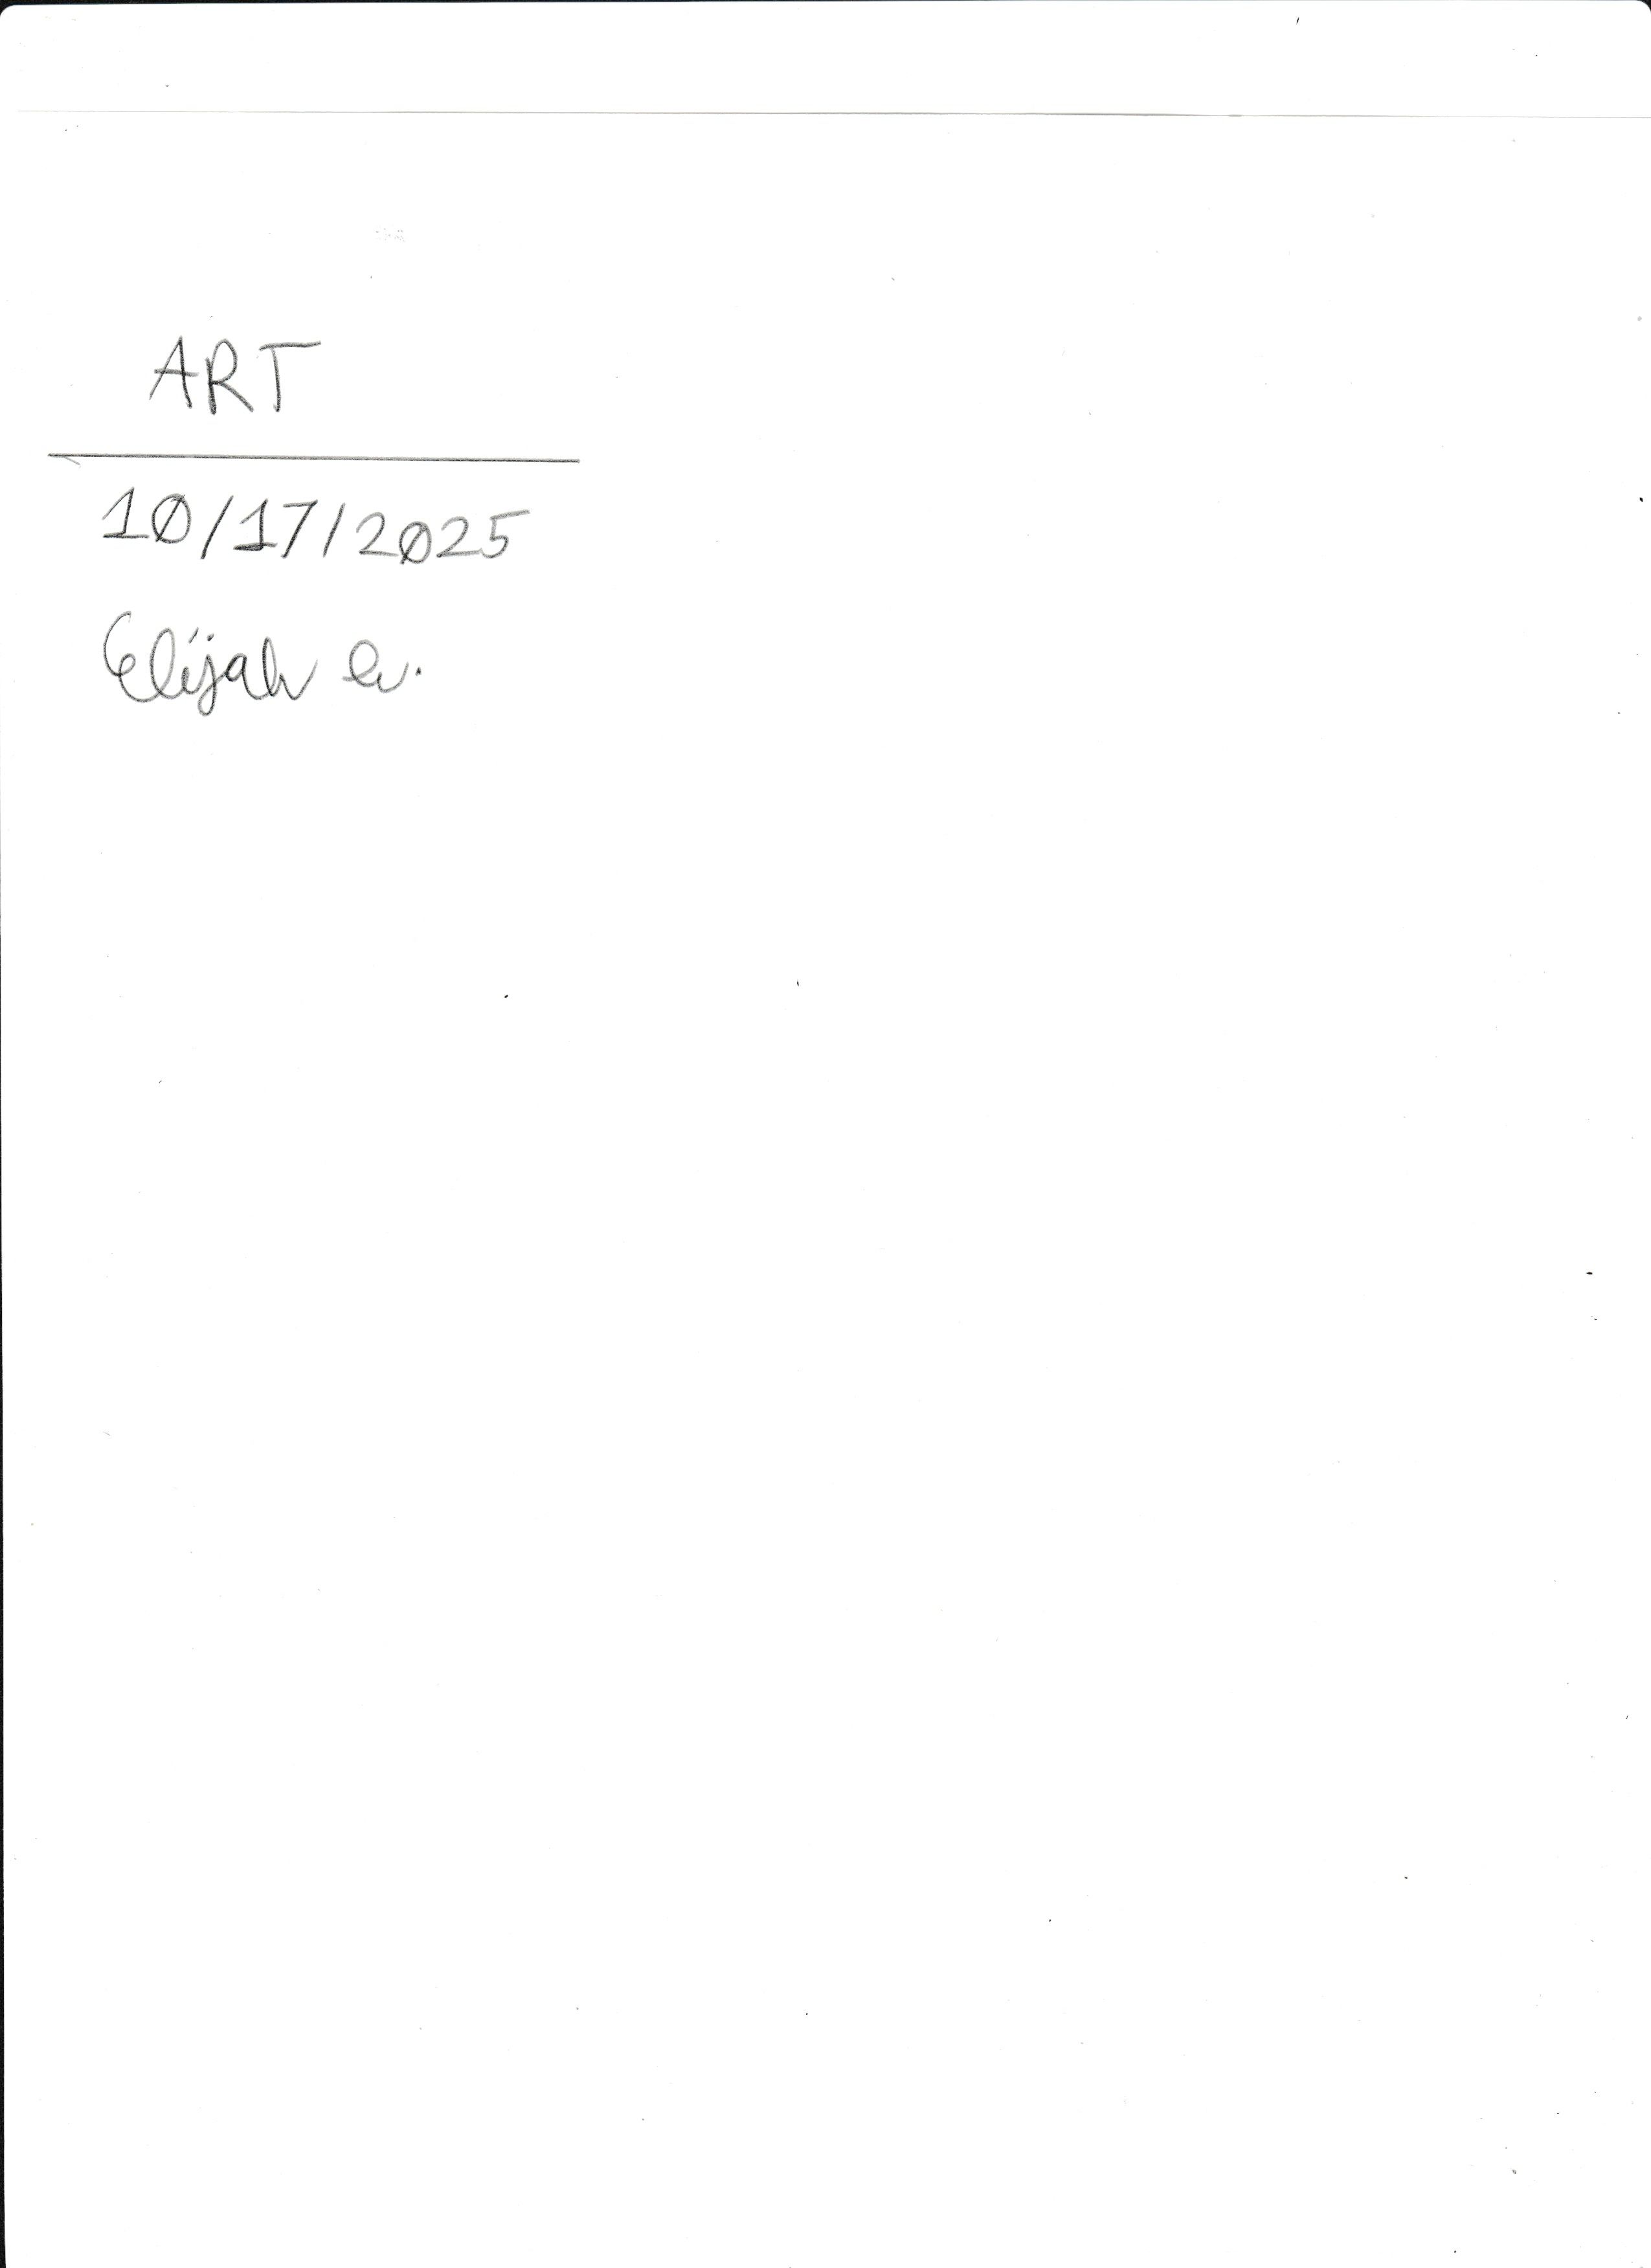 ART
10/17/2025
Elijah